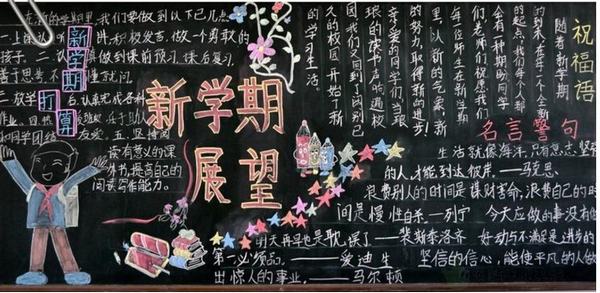 新学期展望
新学期打算
在新的学期里,我们要做到以下几点
一上 积极发言,做一个勇敢的
孩子。二 做到课前预习,课后复习,
善于思考,不 问。
三 放学 后,认真完成各种
作业。四热 班级,乐于助人
和同学团结 友爱。五.坚持阅
读有意义的课
外书,提高自己的
阅读写作能力。
祝福语
随着新学期
的到来,在每一个全新
的起点,我们每个人都
会有一种期盼,同学
们,老师们祝愿我们
每位师生在新学期
里,以新的气象、新
的努力,取得新的进步!
亲爱的同学们,当琅
琅的读书声响遍校
园,我们又回到了阔别已
久的校园,开始了新
的学习生活。
名言警句
生活就像海洋,只有意志坚
的人,才能到达彼岸。——马克思
浪费别人的时间是谋财害命,浪费自己的时
间是慢性自杀——列宁 今天应做的事没有做
明天再早也是耽误了——裴斯泰洛齐 好动与不满足是进步的
第一必须品。——爱迪生 坚信的信心,能使平凡的人做
出惊人的事业。——马尔顿